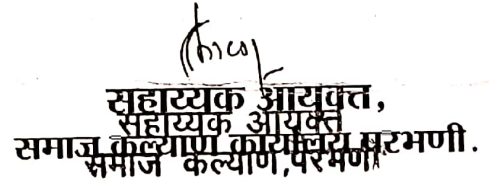 सहाय्यक आयुक्त,
सहाय्यक आयुक्त
समाज कल्याण कार्यालय परभणी.
समाज कल्याण, परभणी